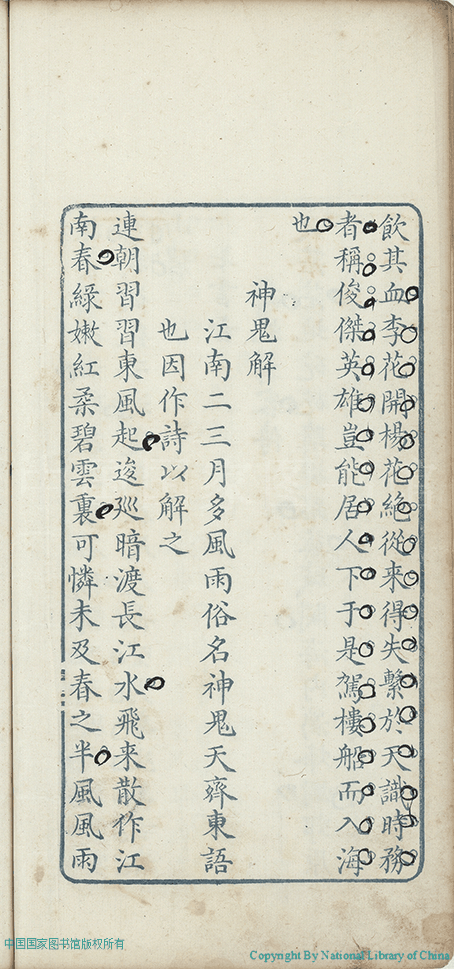 飲其血李花開楊花絕從来得失繫於天識時務
者稱俊傑英雄豈能居人下于是駕樓船而入海
也
神鬼解
江南二三月多風雨俗名神鬼天齊東語
也因作詩以解之
連朝習習東風起逡巡暗渡長江水飛来散作江
南春綠嫩紅柔碧雲裏可憐未及春之半風風雨
中国国家图书馆版权所有
Copyright By National Library of China